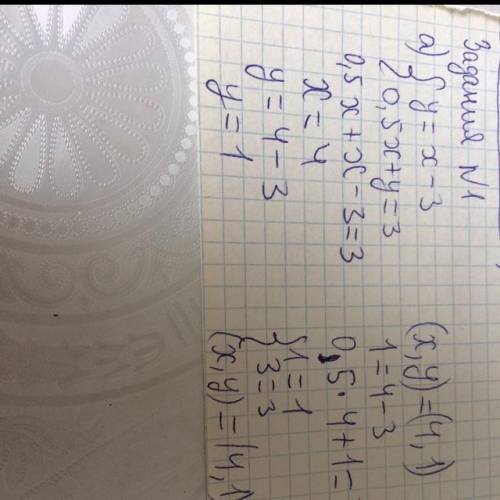 Задания №1
а) { y = x - 3
0,5x + y = 3
0,5x + x - 3 = 3
x = 4
y = 4 - 3
y = 1
(x,y) = (4,1)
1 = 4 - 3
0,5 · 4 + 1 =
{ 1 = 1
3 = 3
(x,y) = (4,1)